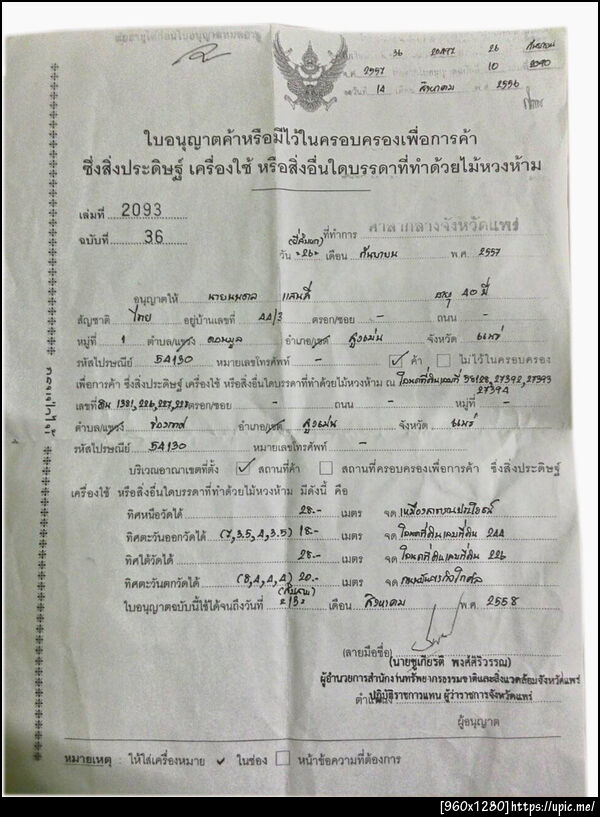 36 26 กันยายน
๒ศ. 2557 10 2090
วันที่ 14 เดือน สิงหาคม พ.ศ. 2556
ใบอนุญาตค้าหรือมีไว้ในครอบครองเพื่อการค้า
ซึ่งสิ่งประดิษฐ์ เครื่องใช้ หรือสิ่งอื่นใดบรรดาที่ทำด้วยไม้หวงห้าม
เล่มที่ 2093
ฉบับที่ 36 ที่ทำการ ศาลากลางจังหวัดแพร่
วัน 26 เดือน กันยายน พ.ศ 2557
อนุญาตให้ แสนดี อายุ 40 ปี
สัญชาติ ไทย อยู่บ้านเลขที่ 44/3 ตรอก/ซอย - ถนน -
หมู่ที่ 1 ตำบล/แขวง ดอนมูล อำเภอ/เขต สูงเม่น จังหวัด แพร่
รหัสไปรษณีย์ 54130 หมายเลขโทรศัพท์ - ค้า ไม่ไว้ในครอบครอง
เพื่อการค้า ซึ่งสิ่งประดิษฐ์ เครื่องใช้ หรือสิ่งอื่นใดบรรดาที่ทำด้วยไม้หวงห้าม ณ โฉนดที่ดินเลขที่ 58128,27392,27393
27394
เลขที่ดิน 1381,226,227,228 ตรอก/ซอย - ถนน - หมู่ที่ -
ตำบล/แขวง อำเภอ/เขต สูงเม่น จังหวัด แพร่
รหัสไปรษณีย์ 54130 หมายเลขโทรศัพท์ -
บริเวณอาณาเขตที่ตั้ง สถานที่ค้า สถานที่ครอบครองเพื่อการค้า ซึ่งสิ่งประดิษฐ์
เครื่องใช้ หรือสิ่งอื่นใดบรรดาที่ทำด้วยไม้หวงห้าม มีดังนี้ คือ
ทิศเหนือวัดได้ 28.- เมตร จด เหมืองสาธารณประโยชน์
ทิศตะวันออกวัดได้ (7,3.5,4,3.5) 18.- เมตร จด โฉนดที่ดินเลขที่ดิน 244
ทิศใต้วัดได้ 28.- เมตร จด โฉนดที่ดินเลขที่ดิน 226
ทิศตะวันตกวัดได้ (8,4,4,4) 20.- เมตร จด
ใบอนุญาตฉบับนี้ใช้ได้จนถึงวันที่ เดือน สิงหาคม พ.ศ. 2558
(ลายมือชื่อ)
(นายชูเกียรติ พงศ์ศิริวรรณ)
ผู้อำนวยการสำนักงานทรัพยากรธรรมชาติและสิ่งแวดล้อมจังหวัดแพร่
ตำแหน่ง ปฏิบัติราชการแทน ผู้ว่าราชการจังหวัดแพร่
ผู้อนุญาต
หมายเหตุ : ให้ใส่เครื่องหมาย ✓ ในช่อง □ หน้าข้อความที่ต้องการ
[960x1280]https://upic.me/